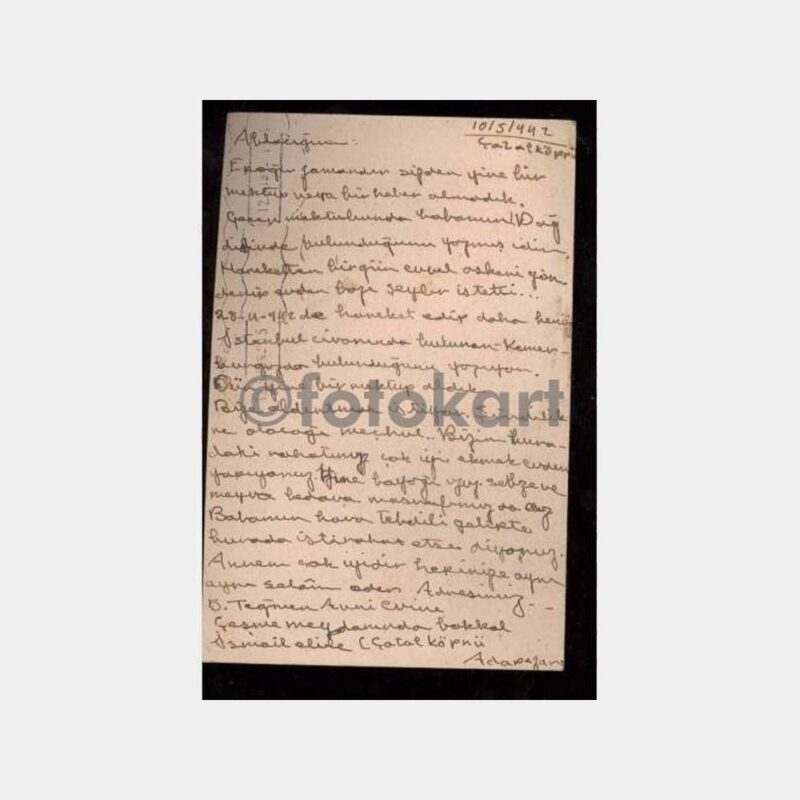 10/5/942
Çatalköprü
Ablacığım:
Epeyi zamandır sizden yine bir
mektup veya bir haber almadık.
Geçen mektubunda babamın Dağ
dibinde bulunduğunu yazmış idim.
Hareketten birgün evvel askeri gön
derip evden bazı şeyler istetti...
28-4-942 de hareket edip daha henüz
İstanbul civarında bulunan Kemer-
burgazda bulunduğunu yazıyor.
yine bir mektup aldık.
Bize
ne olacağı meçhul.. Bizim bura-
daki rahatımız çok iyi ekmek evden
yapıyoruz. Yine bayağı sebze ve
meyva bedava masrafımız da az
Babamın hava tebdili gelipte
burada istirahat etse diyoruz.
Annem çok iyidir hepinize ayrı
ayrı selâm eder Adresimiz--
Ü. Teğmen Avni evine
Çeşme meydanında bakkal
İsmail elile (Çatalköprü
Adapazarı
©fotokart